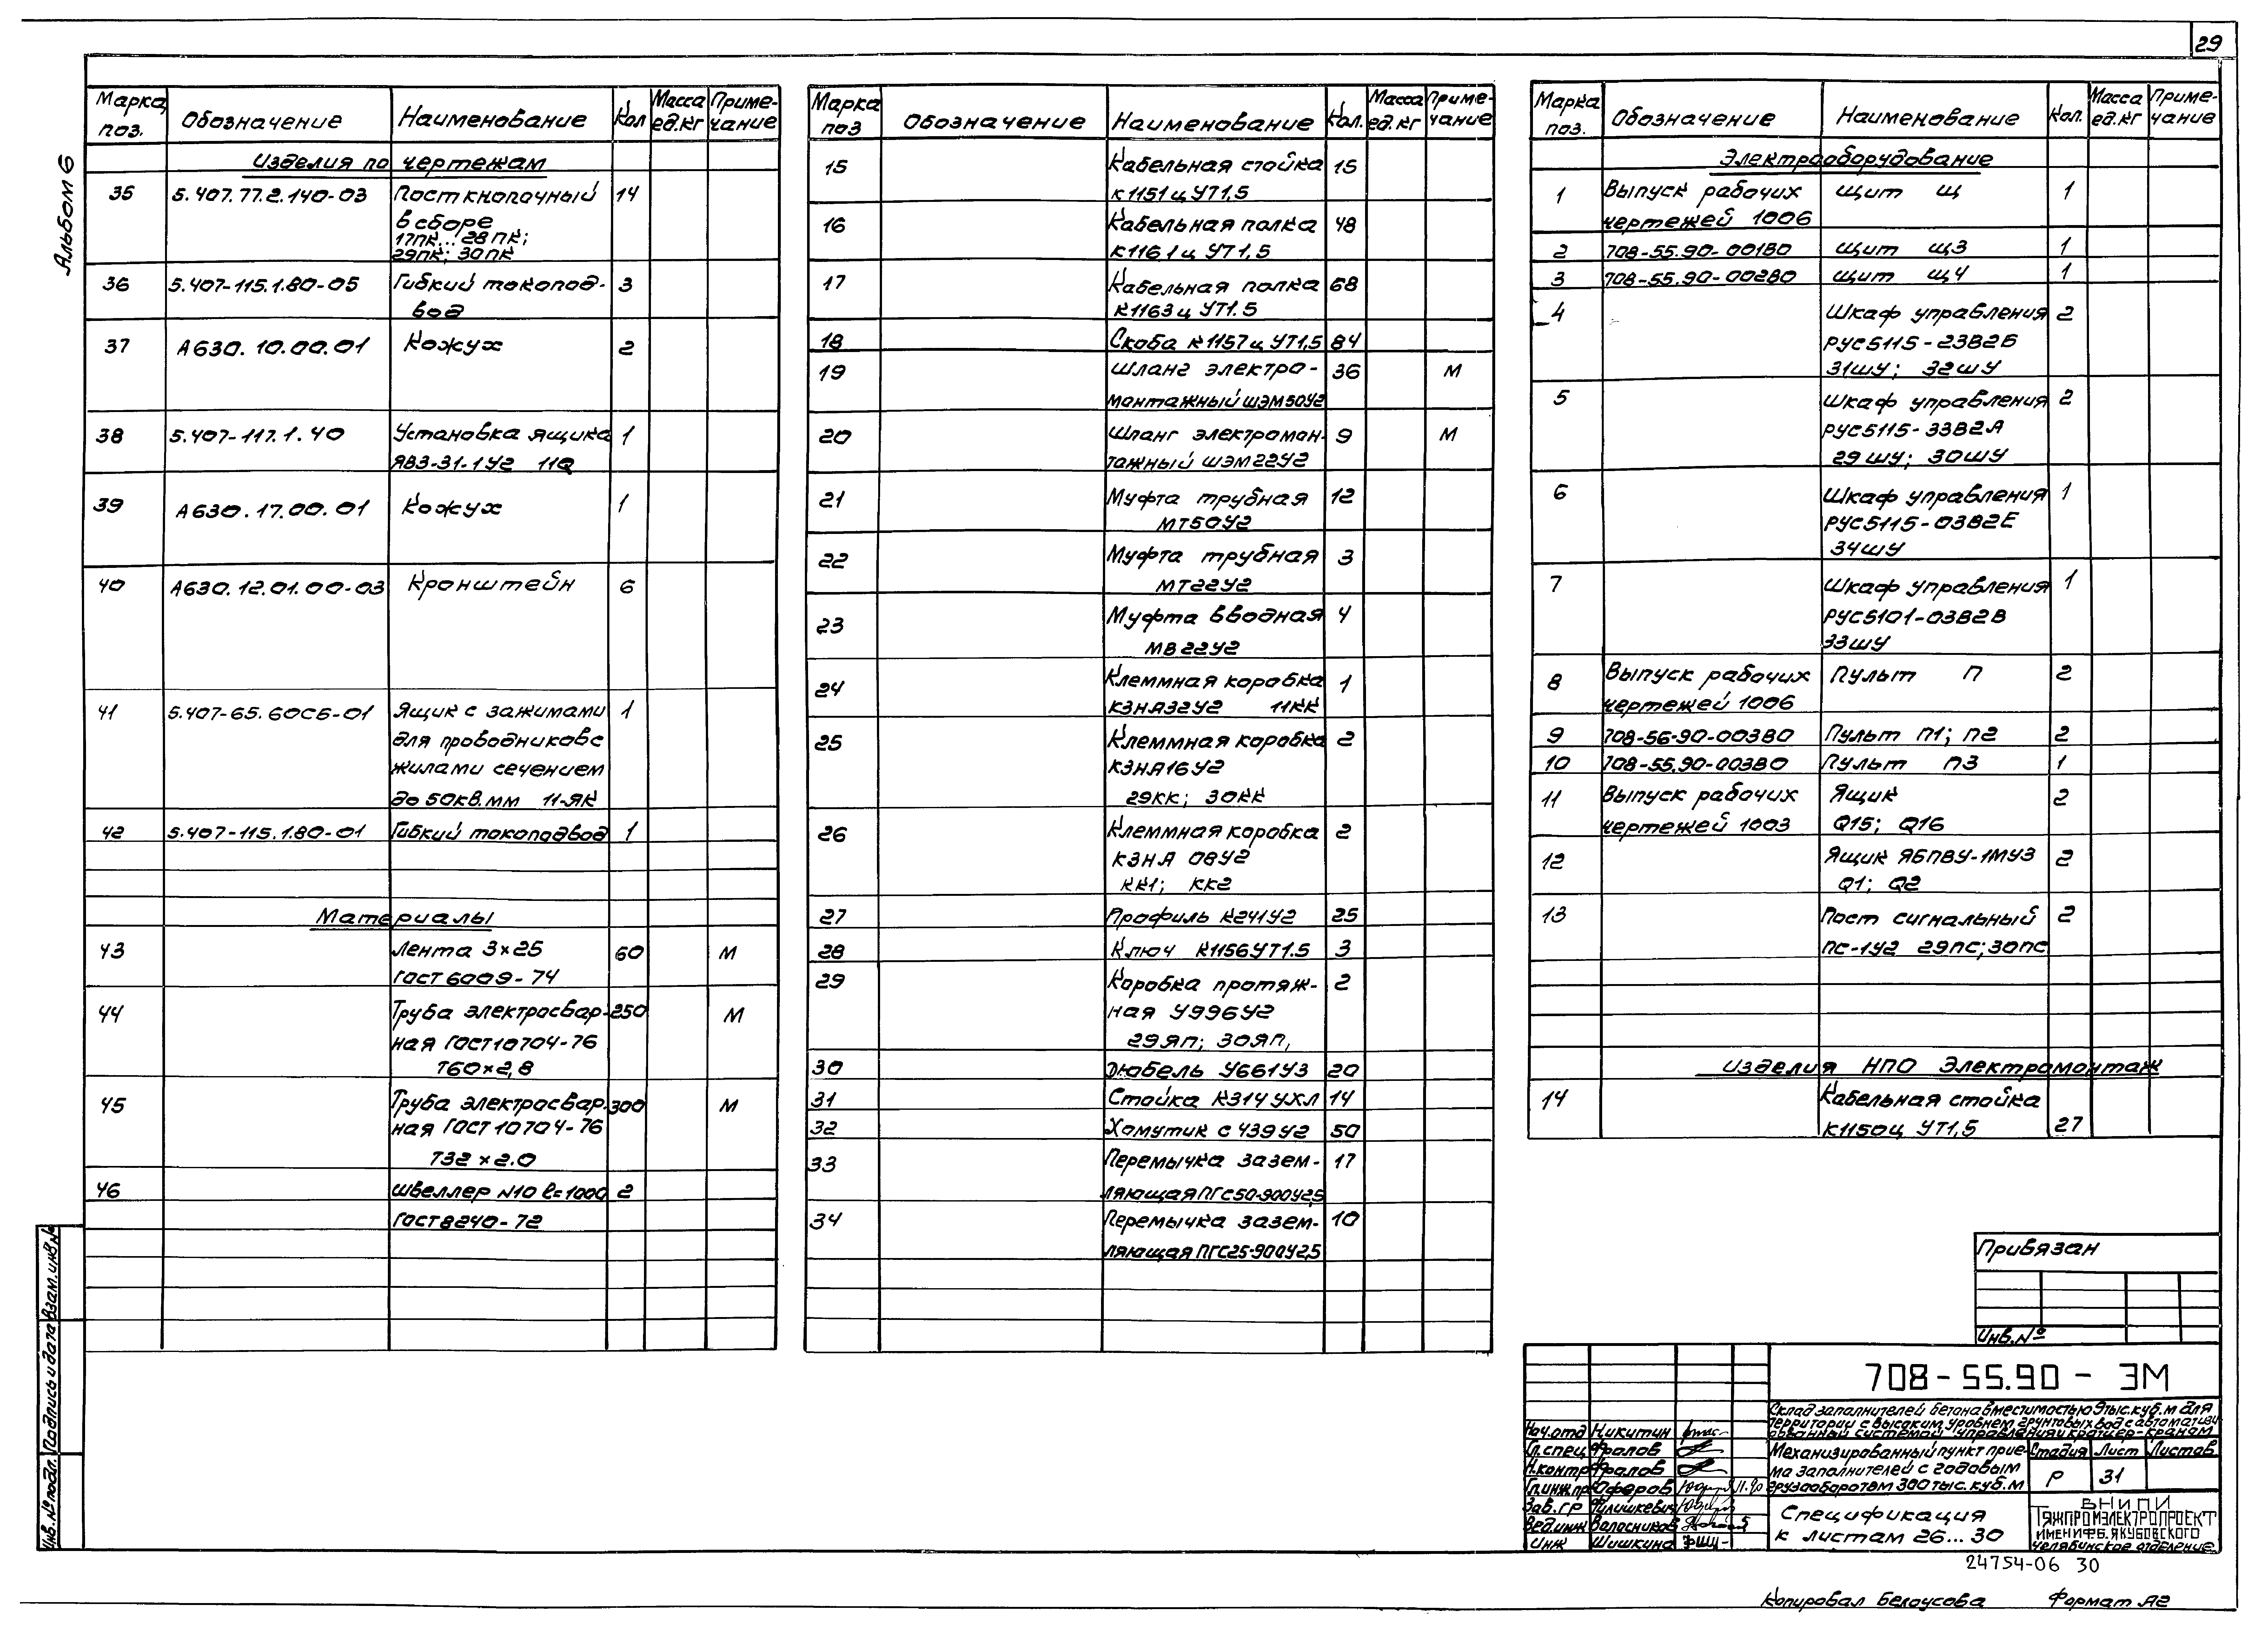 29
Альбом 6
Марка поз. Обозначение Наименование Кол Масса ед.кг Приме-чание
Изделия по чертежам
35 5.407.77.2.140-03 Пост кнопочный 14
в сборе
17ПК...28ПК;
29ПК; 30ПК
36 5.407-115.1.80-05 Гибкий токопод- 3
вод
37 А630.10.00.01 Кожух 2
38 5.407-117.1.40 Установка ящика 1
ЯВЗ-31-1У2 11Q
39 А630.17.00.01 Кожух 1
40 А630.12.01.00-03 Кронштейн 6
41 5.407-65.60СБ-01 Ящик с зажимами 1
для проводников с
жилами сечением
до 50кв.мм 11-ЯК
42 5.407-115.1.80-01 Гибкий токоподвод 1
Материалы
43 Лента 3×25 60 М
ГОСТ 6009-74
44 Труба электросвар- 250 М
ная ГОСТ 10704-76
Т60×2,8
45 Труба электросвар- 300 М
ная ГОСТ 10704-76
Т32×2.0
46 Швеллер N10 ℓ=1000 2
ГОСТ 8240-72
Марка поз Обозначение Наименование Кол. Масса ед.кг Приме-чание
15 Кабельная стойка 15
К1151ц УТ1,5
16 Кабельная полка 48
К1161ц УТ1,5
17 Кабельная полка 68
К1163ц УТ1.5
18 Скоба К1157ц УТ1,5 84
19 Шланг электро- 36 М
монтажный ШЭМ50У2
20 Шланг электромон- 9 М
тажный ШЭМ22У2
21 Муфта трубная 12
МТ50У2
22 Муфта трубная 3
МТ22У2
23 Муфта вводная 4
МВ22У2
24 Клеммная коробка 1
КЗНА32У2 11КК
25 Клеммная коробка 2
КЗНА16У2
29КК; 30КК
26 Клеммная коробка 2
КЗНА 08У2
КК1; КК2
27 Профиль К241У2 25
28 Ключ К1156УТ1.5 3
29 Коробка протяж- 2
ная У996У2
29ЯП; 30ЯП,
30 Дюбель У661У3 20
31 Стойка К314УХЛ 14
32 Хомутик С439У2 50
33 Перемычка зазем- 17
ляющая ПГС50-900У2,5
34 Перемычка зазем- 10
ляющая ПГС25-900У2,5
Марка поз. Обозначение Наименование Кол. Масса ед.кг Приме-чание
Электрооборудование
1 Выпуск рабочих Щит Щ 1
чертежей 1006
2 708-55.90-001ВО Щит Щ3 1
3 708-55.90-002ВО Щит Щ4 1
4 Шкаф управления 2
РУС5115-23В2Б
31ШУ; 32ШУ
5 Шкаф управления 2
РУС5115-33В2А
29ШУ; 30ШУ
6 Шкаф управления 1
РУС5115-03В2Е
34ШУ
7 Шкаф управления 1
РУС5101-03В2В
33ШУ
8 Выпуск рабочих Пульт П 2
чертежей 1006
9 708-56-90-003ВО Пульт П1; П2 2
10 708-55.90-003ВО Пульт П3 1
11 Выпуск рабочих Ящик 2
чертежей 1003 Q15; Q16
12 Ящик ЯБПВУ-1МУ3 2
Q1; Q2
13 Пост сигнальный 2
ПС-1У2 29ПС; 30ПС
Изделия НПО Электромонтаж
14 Кабельная стойка
К1150ц УТ1,5 27
Привязан
Инв.№
708-55.90-ЭМ
Склад заполнителей бетона вместимостью 9тыс.куб.м для
территории с высоким уровнем грунтовых вод с автоматизи-
рованный системой управления кратцер-краном
Нач.отд Никитин
Гл.спец Фралов
Н.контр Фралов
Гл.инж.пр Оферов 11.90
Зав.гр Филишкевич
Вед.инж Валасников
Инж Шишкина
Механизированный пункт прие-
ма заполнителей с годовым
грузооборотом 300 тыс.куб.м
Стадия Лист Листов
Р 31
Спецификация
к листам 26...30
ВНИПИ
ТЯЖПРОМЭЛЕКТРОПРОЕКТ
ИМЕНИ Ф.Б.ЯКУБОВСКОГО
ЧЕЛЯБИНСКОЕ ОТДЕЛЕНИЕ
24754-06 30
Копировал Белоусова Формат А2
Взам.инв.№
Подпись и дата
Инв.№ подл.